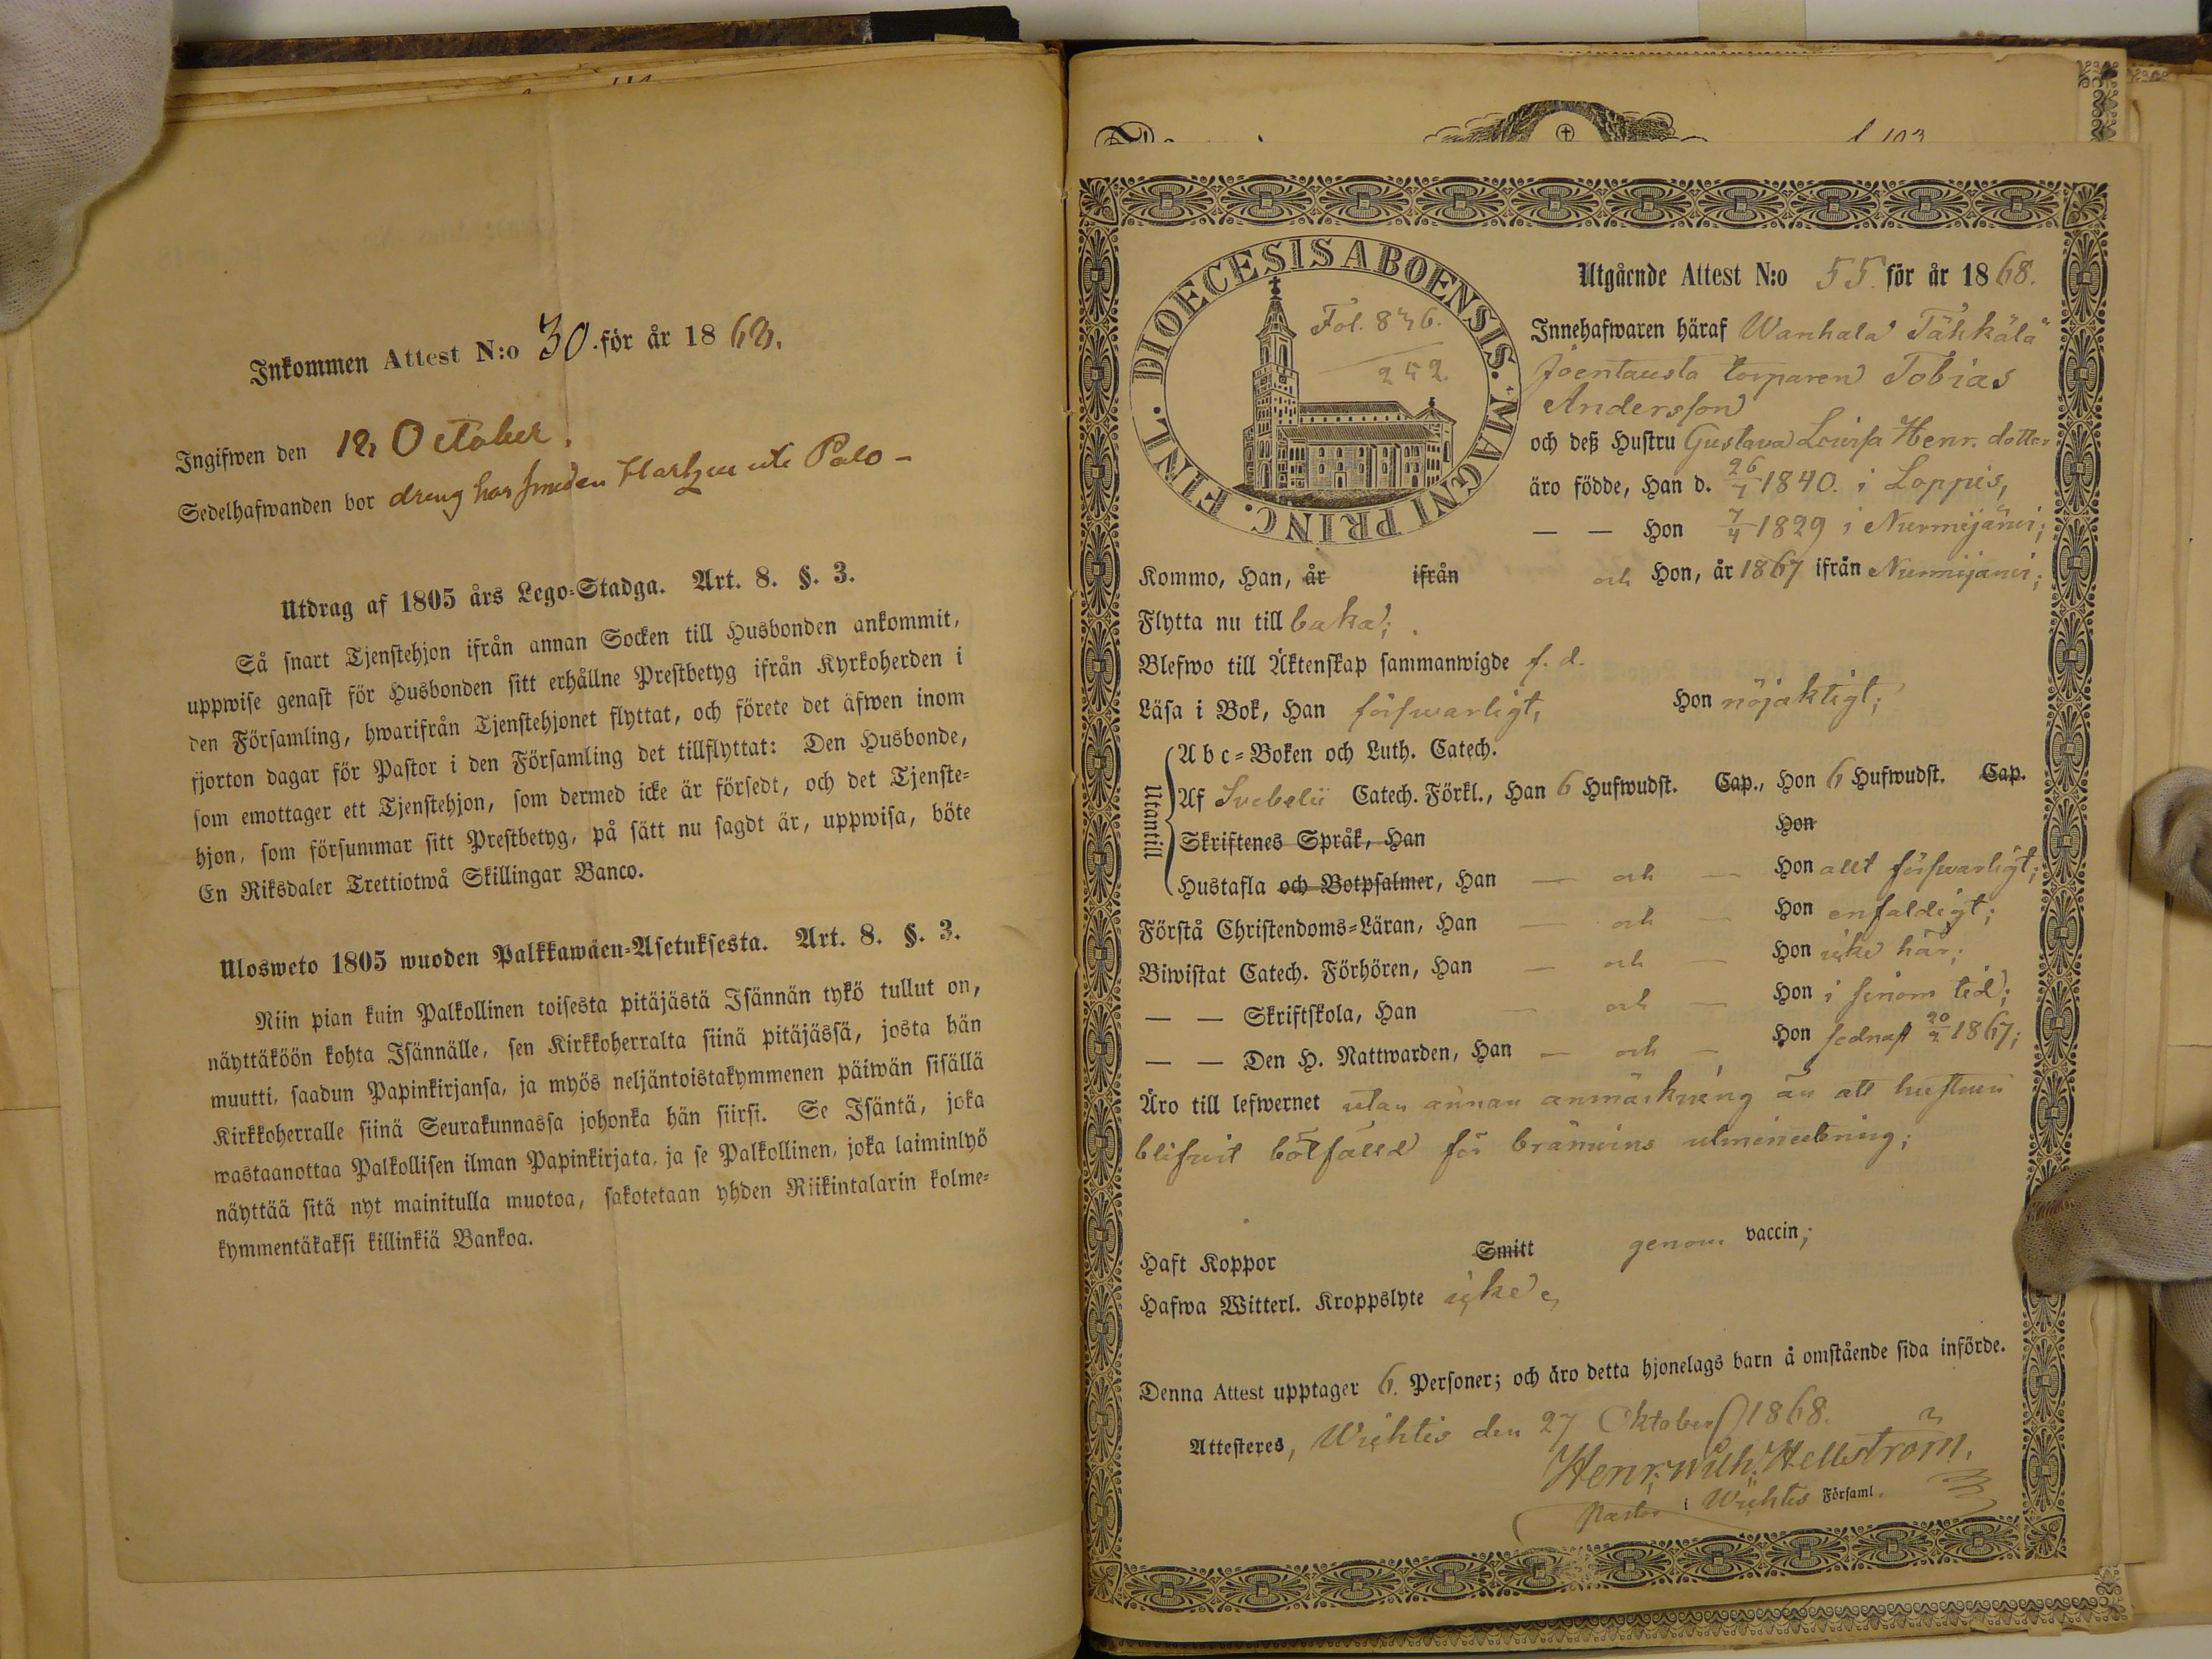 Inkommen Attest N:o 30. för år 1868.
Ingifwen den 12 October.
Sedelhafwanden bor dreng hos smeden
Utdrag af 1805 års Lego-Stadga. Art. 8. §. 3.
Så snart Tjenstehjon ifrån annan Socken till Husbonden ankommit,
uppwise genast för Husbonden sitt erhållne Prestbetyg ifrån Kyrkoherden i
den Församling, hwarifrån Tjenstehjonet flyttat, och förete det äfwen inom
fjorton dagar för Pastor i den Församling det tillflyttat: Den Husbonde,
som emottager ett Tjenstehjon, som dermed icke är försedt, och det Tjenste-
hjon, som försummar sitt Prestbetyg, på sätt nu sagdt är, uppwisa, böte
En Riksdaler Trettiotwå Skillingar Banco.
Ulosweto 1805 wuoden Palkkawäen-Asetuksesta. Art. 8. §. 3.
Niin pian kuin Palkollinen toisesta pitäjästä Isännän tykö tullut on,
näyttäköön kohta Isännälle, sen Kirkkoherralta siinä pitäjässä, josta hän
muutti, saadun Papinkirjansa, ja myös neljäntoistakymmenen päiwän sisällä
Kirkkoherralle siinä Seurakunnassa johonka hän siirsi. Se Isäntä, joka
wastaanottaa Palkollisen ilman Papinkirjata, ja se Palkollinen, joka laiminlyö
näyttää sitä nyt mainitulla muotoa, sakotetaan yhden Riikintalarin kolme-
kymmentäkaksi killinkiä Bankoa.
DIOECESIS ABOENSIS. MAGNI PRINC. FINL.
Fol. 846.
252.
Utgående Attest N:o 55. för år 1868.
Innehafwaren häraf Wanhala Tähkälä
Joentausta torparen Tobias
Andersson
och deß Hustru Gustava Lovisa Henr. dotter
äro födde, Han d. 26/1 1840. i Loppis,
— — Hon 7/4 1829 i Nurmijärvi;
Kommo, Han, år ifrån och Hon, år 1867 ifrån Nurmijärvi;
Flytta nu till baka;
Blefwo till Äktenskap sammanwigde f. d.
Läsa i Bok, Han försvarligt, Hon nöjaktigt;
Utantill
Abc-Boken och Luth. Catech.
Af Svebelii Catech. Förkl., Han 6 Hufwudst. Cap., Hon 6 Hufwudst. Cap.
Skriftenes Språk, Han Hon
Hustafla och Botpsalmer, Han — och — Hon allt försvarligt;
Förstå Christendoms-Läran, Han — och — Hon enfaldigt;
Biwistat Catech. Förhören, Han — och — Hon icke här;
— — Skriftskola, Han — och — Hon i sinom tid;
— — Den H. Nattwarden, Han — och — Hon sednast 1867;
Äro till lefwernet utan annan anmärkning än att hustrun
blifvit bötfälld för bränvins utminutering;
Haft Koppor Smitt genom vaccin;
Hafwa Witterl. Kroppslyte icke
Denna Attest upptager 6. Personer; och äro detta hjonelags barn å omstående sida införde.
Attesteres, Wichtis den 27 Oktober 1868.
Henr. Wilh. Hellström.
Pastor i Wichtis Församl.